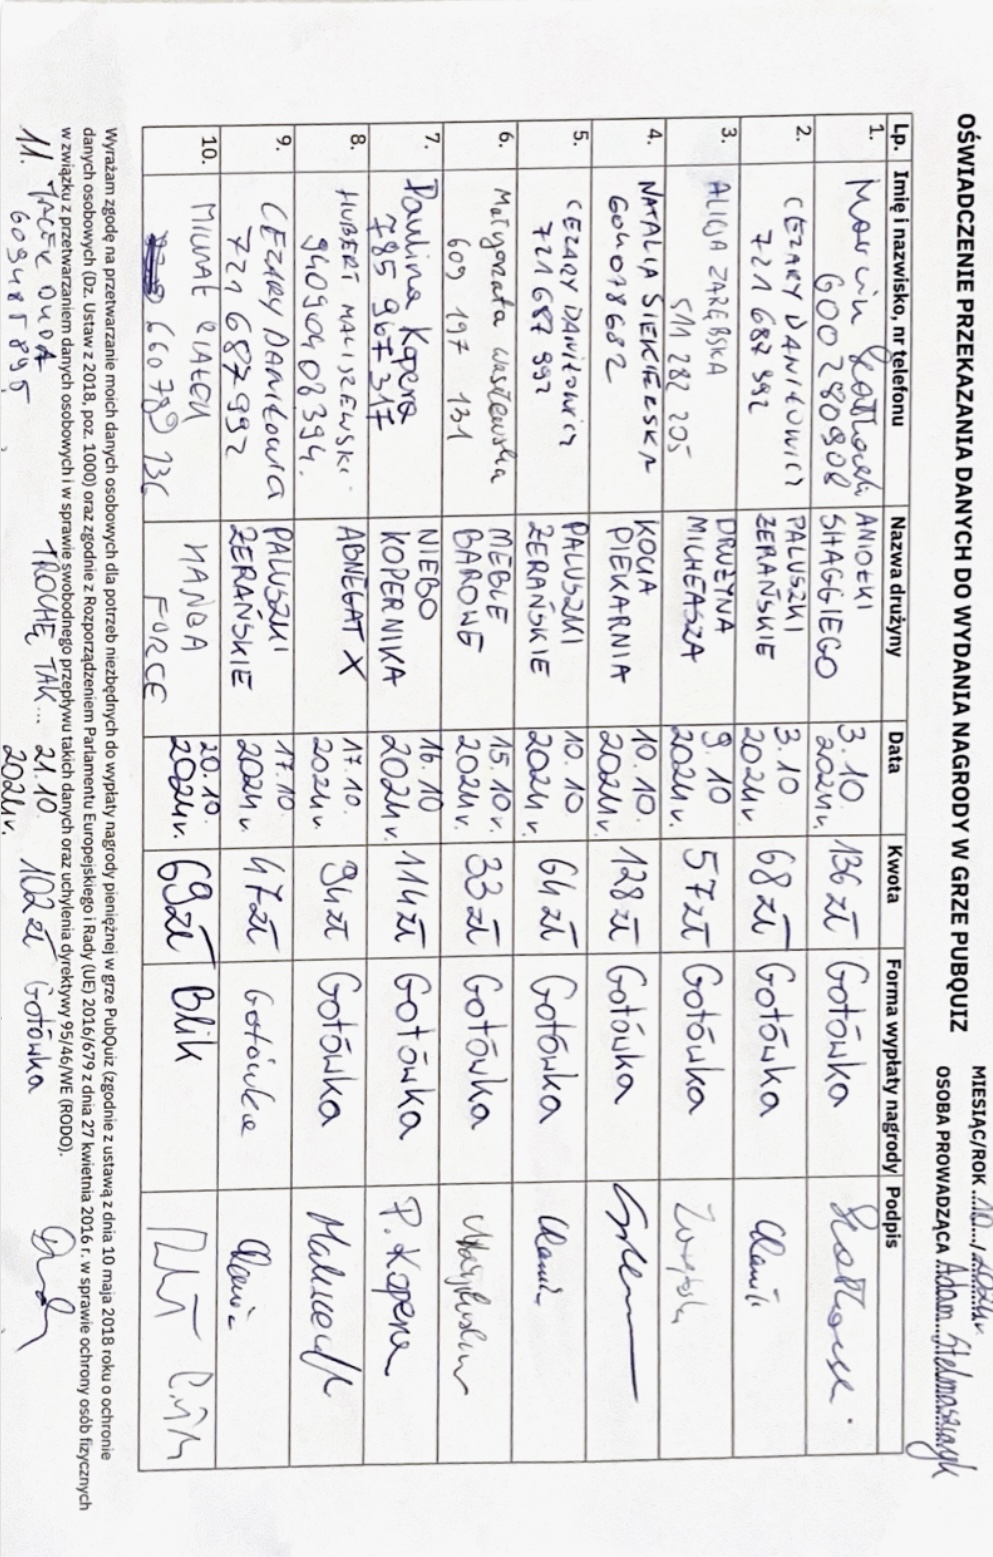 OŚWIADCZENIE PRZEKAZANIA DANYCH DO WYDANIA NAGRODY W GRZE PUBQUIZ
MIESIĄC/ROK ...10.../...2024r.
OSOBA PROWADZĄCA Adam Stelmaszczyk
Lp. Imię i nazwisko, nr telefonu Nazwa drużyny Data Kwota Forma wypłaty nagrody Podpis
1. Marcin ANIOŁKI 3.10 136 zł Gotówka
600 280908 SHAGGIEGO 2024r.
2. CEZARY DANIŁOWICZ PALUSZKI 3.10 68 zł Gotówka
721 687 992 ŻERAŃSKIE 2024r.
3. ALICJA ZARĘBSKA DRUŻYNA 9.10 57zł Gotówka
511 282 205 MICHEASZA 2024r.
4. NATALIA SIEKIERSKA KOCIA 10.10. 128zł Gotówka
604078682 PIEKARNIA 2024r.
5. CEZARY DANIŁOWICZ PALUSZKI 10.10 64 zł Gotówka
721 687 992 ŻERAŃSKIE 2024r.
6. Małgorzata Wasilewska MEBLE 15.10r. 33 zł Gotówka
609 197 131 BAROWE 2024r.
7. Paulina Kopera NIEBO 16.10 114zł Gotówka P. Kopera
785 967 317 KOPERNIKA 2024r.
8. HUBERT MALISZEWSKI ABNEGAT X 17.10. 94zł Gotówka
2024r.
9. CEZARY DANIŁOWICZ PALUSZKI 17.10. 47zł Gotówka
721 687 992 ŻERAŃSKIE 2024r.
10. MICHAŁ 20.10. 69zł Blik
FORCE 2024r.
Wyrażam zgodę na przetwarzanie moich danych osobowych dla potrzeb niezbędnych do wypłaty nagrody pieniężnej w grze PubQuiz (zgodnie z ustawą z dnia 10 maja 2018 roku o ochronie
danych osobowych (Dz. Ustaw z 2018, poz. 1000) oraz zgodnie z Rozporządzeniem Parlamentu Europejskiego i Rady (UE) 2016/679 z dnia 27 kwietnia 2016 r. w sprawie ochrony osób fizycznych
w związku z przetwarzaniem danych osobowych i w sprawie swobodnego przepływu takich danych oraz uchylenia dyrektywy 95/46/WE (RODO).
11. JACEK DUDA TROCHĘ TAK... 21.10 102 zł Gotówka
609485895 2024r.